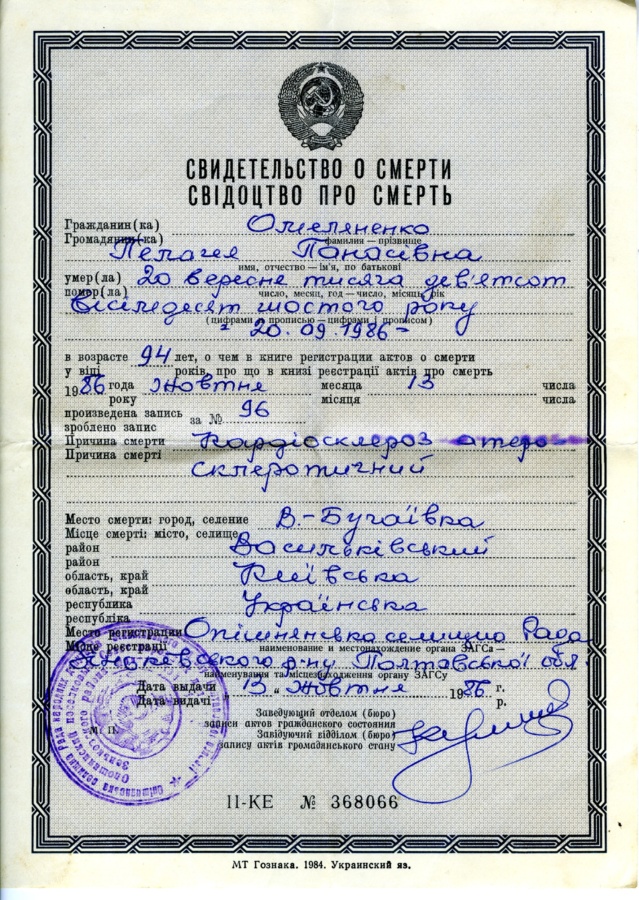 СВИДЕТЕЛЬСТВО О СМЕРТИ
СВІДОЦТВО ПРО СМЕРТЬ
Гражданин(ка) Омеляненко
Громадянин(ка) фамилия — прізвище
Пелагея Панасівна
имя, отчество — ім'я, по батькові
умер(ла) 20 вересня тисяча дев'ятсот
помер(ла) число, месяц, год — число, місяць, рік
вісімдесят шостого року
(цифрами и прописью — цифрами і прописом)
20.09.1986
в возрасте 94 лет, о чем в книге регистрации актов о смерти
у віці років, про що в книзі реєстрації актів про смерть
1986 года Жовтня месяца 13 числа
року місяця числа
произведена запись за № 96
зроблено запис
Причина смерти Кардіосклероз атеро-
Причина смерті
склеротичний
Место смерти: город, селение В.-Бугаївка
Місце смерті: місто, селище
район Васильківський
район
область, край Київська
область, край
республика Українська
республіка
Место регистрации Опішнянська селищна Рада
Місце реєстрації наименование и местонахождение органа ЗАГСа —
р-ну Полтавської обл
найменування та місцезнаходження органу ЗАГСу
Дата выдачи 13 Жовтня 1986 г.
Дата видачі р.
М. П.
Заведующий отделом (бюро)
записи актов гражданского состояния
Завідуючий відділом (бюро)
запису актів громадянського стану
II-КЕ № 368066
МТ Гознака. 1984. Украинский яз.